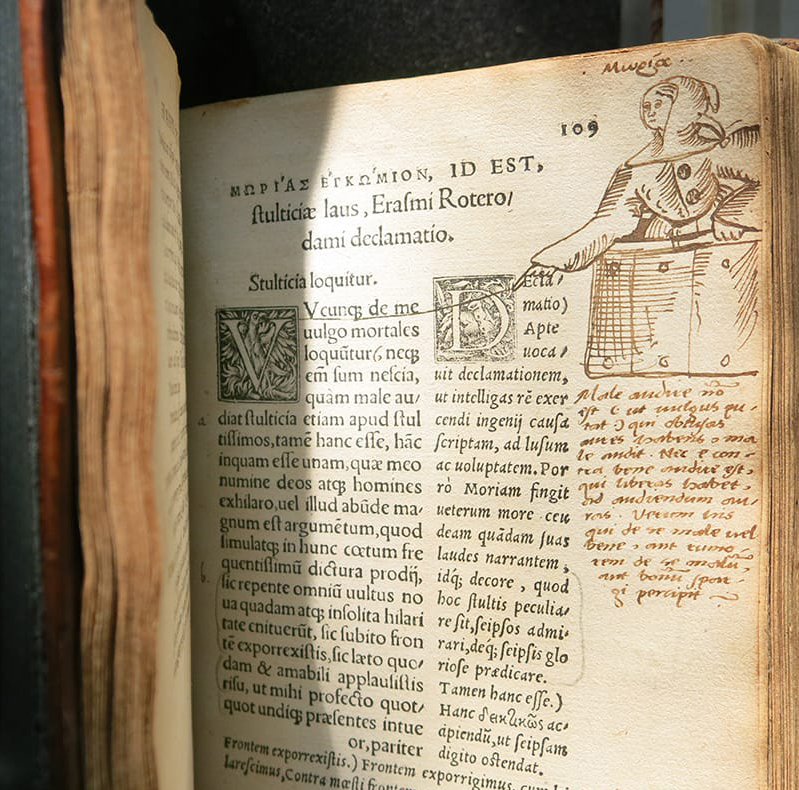 Μωρία
109
ΜΩΡΙ´ΑΣ ΕΓΚΩ´ΜΙΟΝ, ID EST,
ſtulticiæ laus, Eraſmi Rotero/
dami declamatio.
Stulticia loquitur.
VTcunq; de me
uulgo mortales
loquūtur, neq;
em̄ ſum neſcia,
quàm male au/
diat ſtulticia etiam apud ſtul
tiſſimos, tamē hanc eſſe, hāc
inquam eſſe unam, quæ meo
numine deos atq; homines
exhilaro, uel illud abūde ma/
gnum eſt argumētum, quod
ſimulatq; in hunc cœtum fre
quentiſſimū dictura prodij,
ſic repente omniū uultus no
ua quadam atq; inſolita hilari
tate enituerūt, ſic ſubito fron
tē exporrexiſtis, ſic læto quo/
dam & amabili applauſiſtis
riſu, ut mihi profecto quot/
quot undiq; præſentes intue
or, pariter
a
b.
DEcla/
matio)
Apte
uoca/
uit declamationem,
ut intelligas rē exer
cendi ingenij cauſa
ſcriptam, ad luſum
ac voluptatem. Por
rò Moriam fingit
ueterum more ceu
deam quādam ſuas
laudes narrantem,
idq; decore, quod
hoc ſtultis peculia/
re ſit, ſeipſos admi/
rari, deq; ſeipſis glo
rioſe prædicare.
Tamen hanc eſſe.)
Hanc δεικτικῶς ac/
apiendū, ut ſeipſam
digito oſtendat.
Frontem exporrexiſtis.) Frontem exporrigimus, cum
lareſcimus, Contra mœſti frontem
Male audire nō
est (ut uulgus pu-
tat) qui obtusas
aures habens, ma
le audit. Nec e con-
tra bene audire est,
qui liberas habet,
ad audiendum au-
res. Verum is
qui de se male uel
bene, aut rumo
rem de se malū,
aut bonū spar-
gi percipit